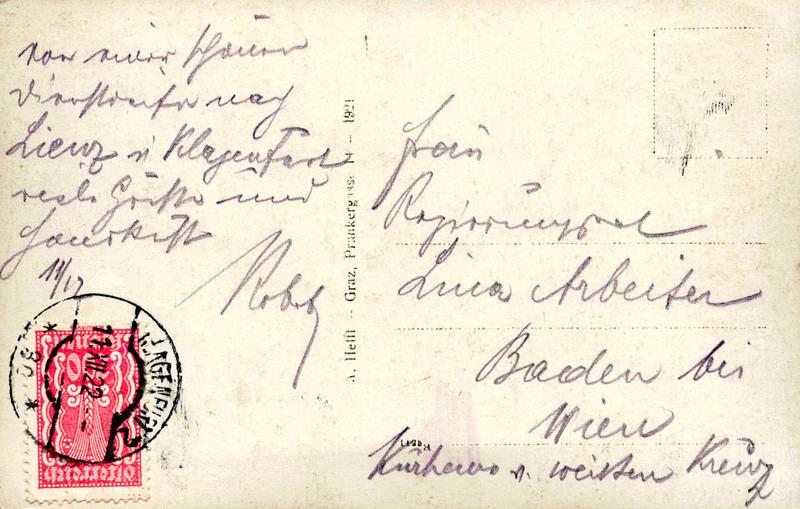 von einer schönen
Dienstreise nach
Lienz u Klagenfurt
viele Grüße und
Handkuß
Robert
11/12
A. Helff — Graz, Prankergasse — 1921
Frau
Regierungsrat
Lina Arbeiter
Baden bei
Wien
Kurhaus z. weissen Kreuz
KLAGENFURT 2
11.XII.22
Österreich